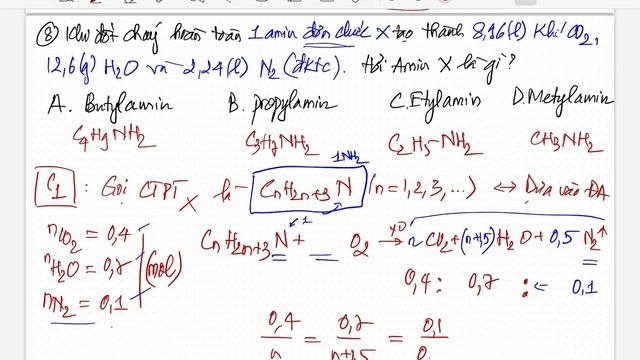 ⑧ Khi đốt cháy hoàn toàn 1 amin đơn chức X tạo thành 8,96(l) khí CO2,
12,6(g) H2O và 2,24(l) N2 (đktc). Hỏi Amin X là gì?
A. Butylamin B. propylamin C. Etylamin D. Metylamin
C4H9NH2 C3H7NH2 C2H5-NH2 CH3NH2
1NH2
C1 : Gọi CTPT X là CnH2n+3 N (n=1,2,3,...) ⇔ Dựa vào ĐA
1
nCO2 = 0,4 CnH2n+3 N + __ O2 → t° nCO2 + (n+1,5) H2O + 0,5 N2↑
nH2O = 0,7 (mol) 0,4 : 0,7 : ← 0,1
nN2 = 0,1
0,4/n = 0,7/n+1,5 = 0,1/0,